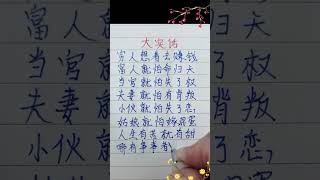 大实话
穷人想着去赚钱
富人就怕命归天
当官就怕失了权
夫妻就怕有背叛
小伙就怕失了恋,
姑娘就怕嫁混蛋
人生有苦就有甜
哪有事事有